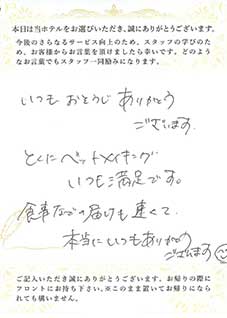 本日は当ホテルをお選びいただき、誠にありがとうございます。
今後のさらなるサービス向上のため、スタッフの学びのため、お客様からお言葉を頂けましたら幸いです。どのようなお言葉でもスタッフ一同励みになります。
いつも おそうじ ありがとう
ございます。
とくにベットメイキング
いつも満足です。
食事などの届けも速くて、
本当にいつもありがとう
ございます
ご記入いただき誠にありがとうございます。お帰りの際に
フロントにお持ち下さい。※このまま置いてお帰りになら
れても構いません。